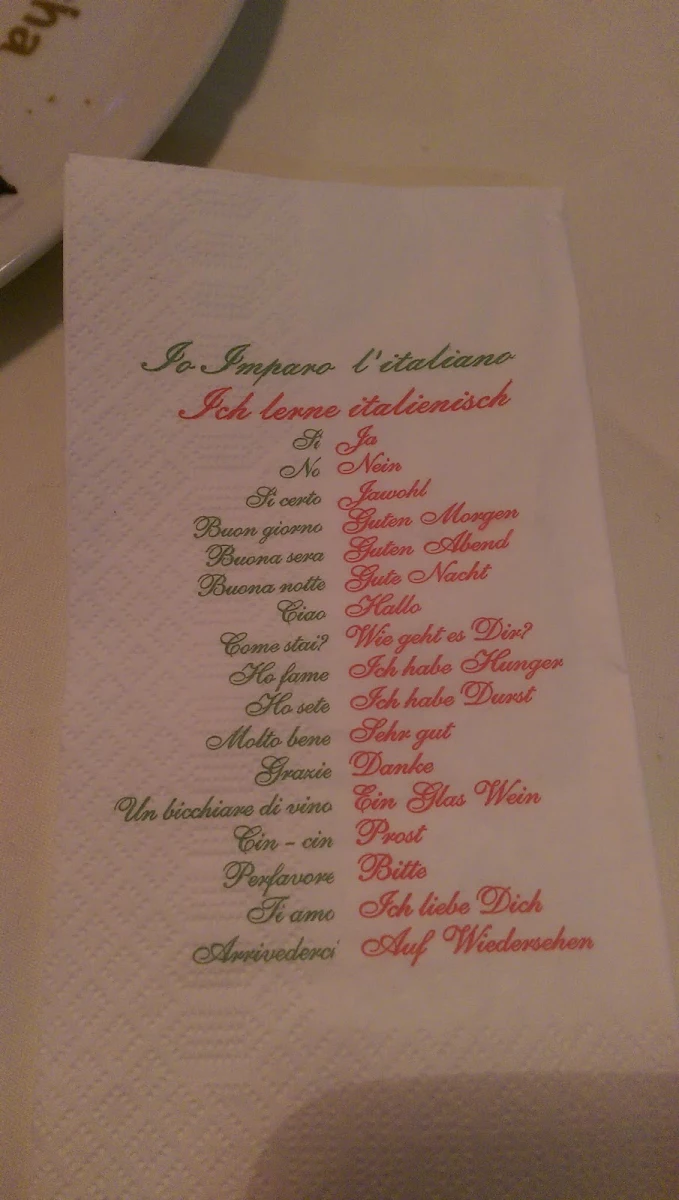 cha
Io Imparo l'italiano
Ich lerne italienisch
Si Ja
No Nein
Si certo Jawohl
Buon giorno Guten Morgen
Buona sera Guten Abend
Buona notte Gute Nacht
Ciao Hallo
Come stai? Wie geht es Dir?
Ho fame Ich habe Hunger
Ho sete Ich habe Durst
Molto bene Sehr gut
Grazie Danke
Un bicchiare di vino Ein Glas Wein
Cin - cin Prost
Perfavore Bitte
Ti amo Ich liebe Dich
Arrivederci Auf Wiedersehen